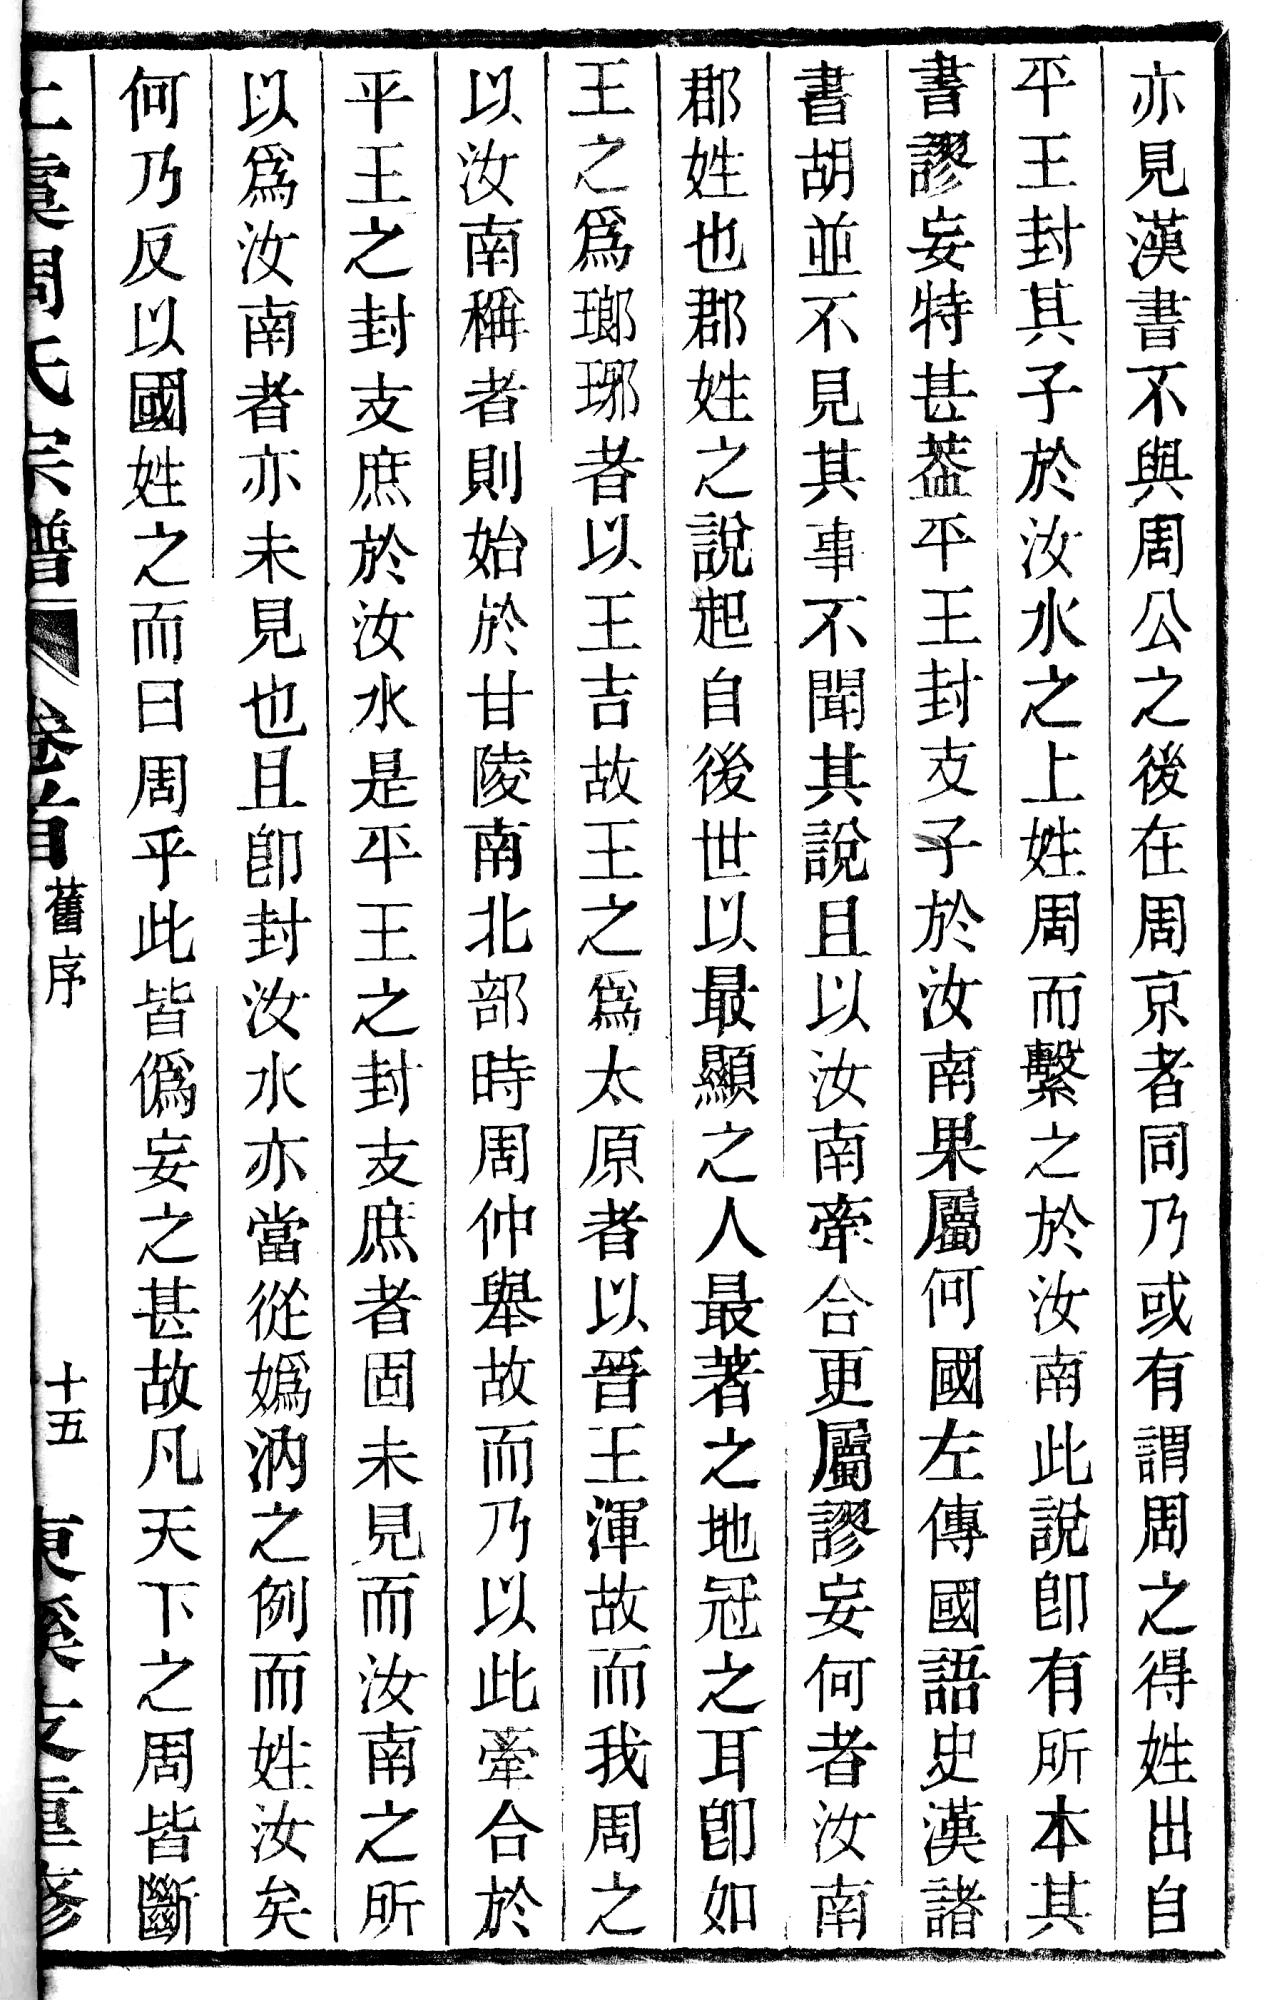 亦見漢書不與周公之後在周京者同乃或有謂周之得姓出自
平王封其子於汝水之上姓周而繫之於汝南此說卽有所本其
書謬妄特甚葢平王封支子於汝南果屬何國左傳國語史漢諸
書胡並不見其事不聞其說且以汝南牽合更屬謬妄何者汝南
郡姓也郡姓之說起自後世以最顯之人最著之地冠之耳卽如
王之爲瑯琊者以王吉故王之爲太原者以晉王渾故而我周之
以汝南稱者則始於甘陵南北部時周仲舉故而乃以此牽合於
平王之封支庶於汝水是平王之封支庶者固未見而汝南之所
以爲汝南者亦未見也且卽封汝水亦當從嬀汭之例而姓汝矣
何乃反以國姓之而曰周乎此皆僞妄之甚故凡天下之周皆斷
上虞周氏宗譜 卷首 舊序 十五 東溪支重修